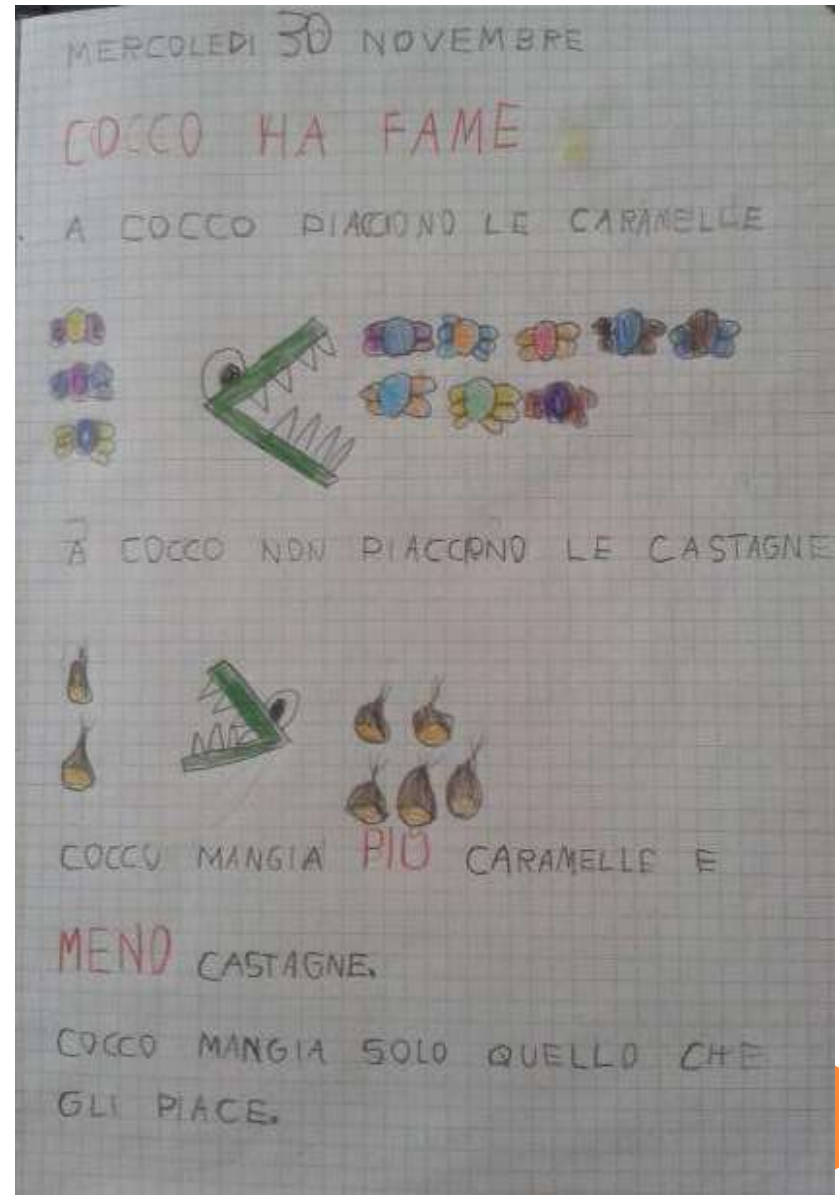 MERCOLEDI 30 NOVEMBRE
COCCO HA FAME
A COCCO PIACCIONO LE CARAMELLE
A COCCO NON PIACCONO LE CASTAGNE
COCCO MANGIA PIÙ CARAMELLE E
MENO CASTAGNE.
COCCO MANGIA SOLO QUELLO CHE
GLI PIACE.